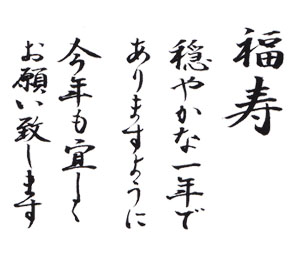 福寿
穏やかな一年で
ありますように
今年も宜しく
お願い致します